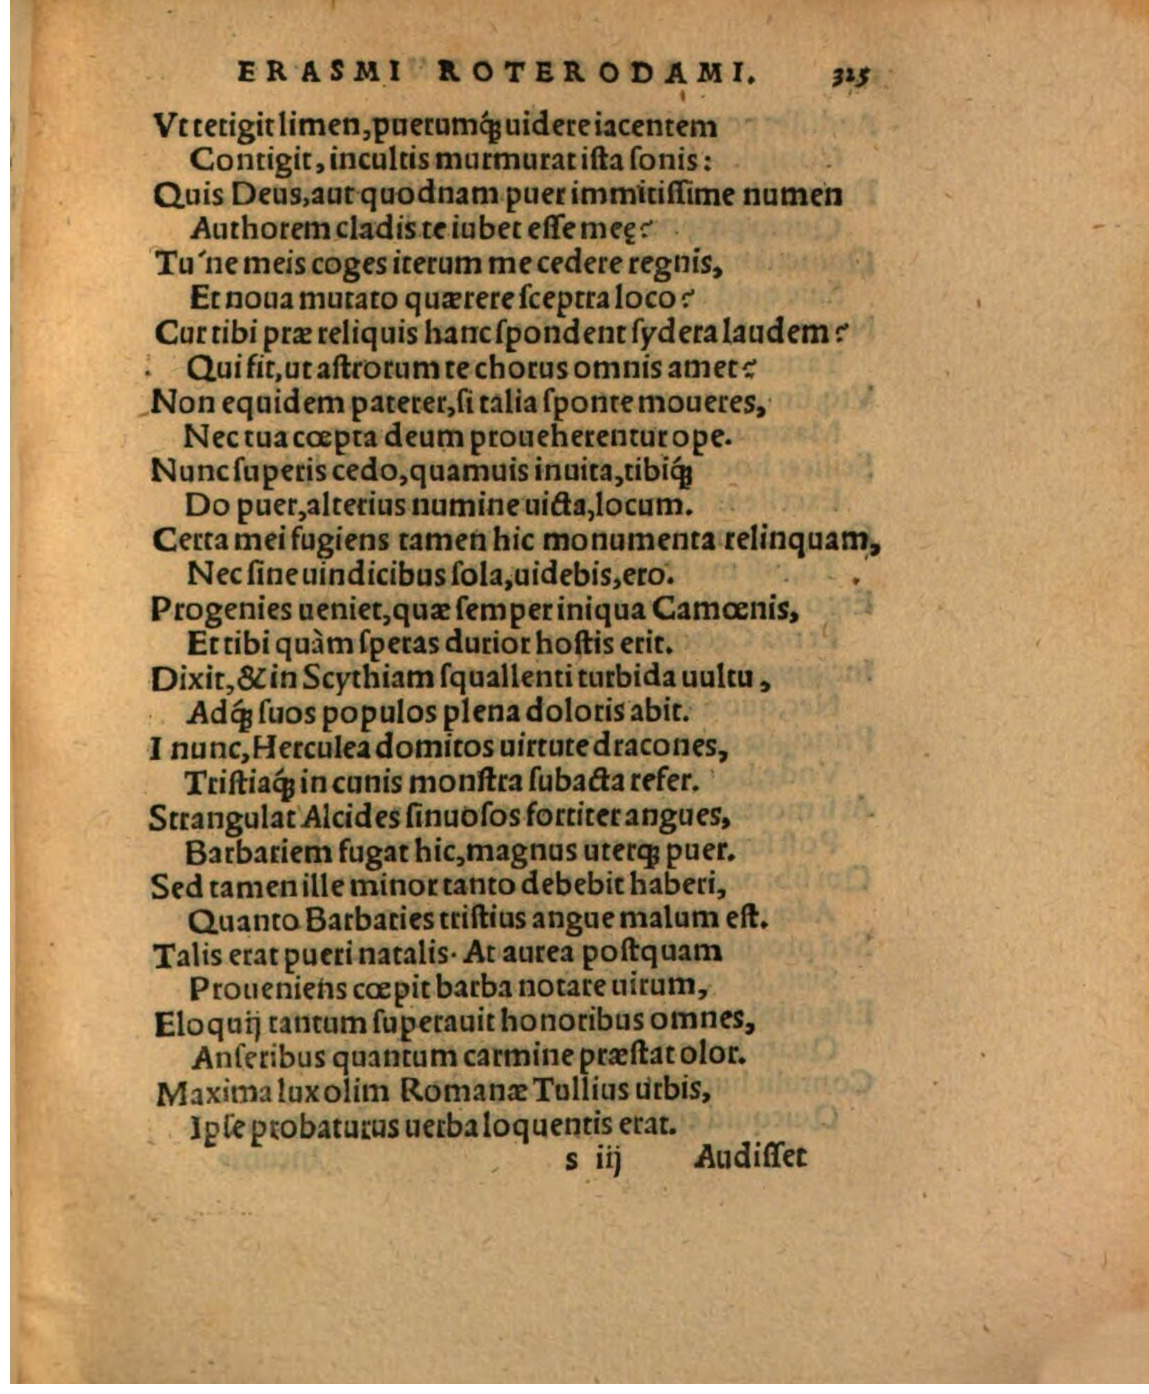 ERASMI ROTERODAMI. 325
Vt tetigit limen, puerumq́ꝫ uidere iacentem
Contigit, incultis murmurat iſta ſonis:
Quis Deus, aut quodnam puer immitiſſime numen
Authorem cladis te iubet eſſe meę?
Tu´ne meis coges iterum me cedere regnis,
Et noua mutato quærere ſceptra loco?
Cur tibi præ reliquis hanc ſpondent ſydera laudem?
Qui fit, ut aſtrorum te chorus omnis amet?
Non equidem paterer, ſi talia ſponte moueres,
Nec tua cœpta deum proueherentur ope.
Nunc ſuperis cedo, quamuis inuita, tibiq́ꝫ
Do puer, alterius numine uicta, locum.
Certa mei fugiens tamen hic monumenta relinquam,
Nec ſine uindicibus ſola, uidebis, ero.
Progenies ueniet, quæ ſemper iniqua Camœnis,
Et tibi quàm ſperas durior hoſtis erit.
Dixit, & in Scythiam ſquallenti turbida uultu,
Adq́ꝫ ſuos populos plena doloris abit.
I nunc, Herculea domitos uirtute dracones,
Triſtiaq́ꝫ in cunis monſtra ſubacta refer.
Strangulat Alcides ſinuoſos fortiter angues,
Barbariem fugat hic, magnus uterqꝫ puer.
Sed tamen ille minor tanto debebit haberi,
Quanto Barbaries triſtius angue malum eſt.
Talis erat pueri natalis. At aurea poſtquam
Proueniens cœpit barba notare uirum,
Eloquij tantum ſuperauit honoribus omnes,
Anſeribus quantum carmine præſtat olor.
Maxima lux olim Romanæ Tullius urbis,
Ipſe probaturus uerba loquentis erat.
s iij Audiſſet